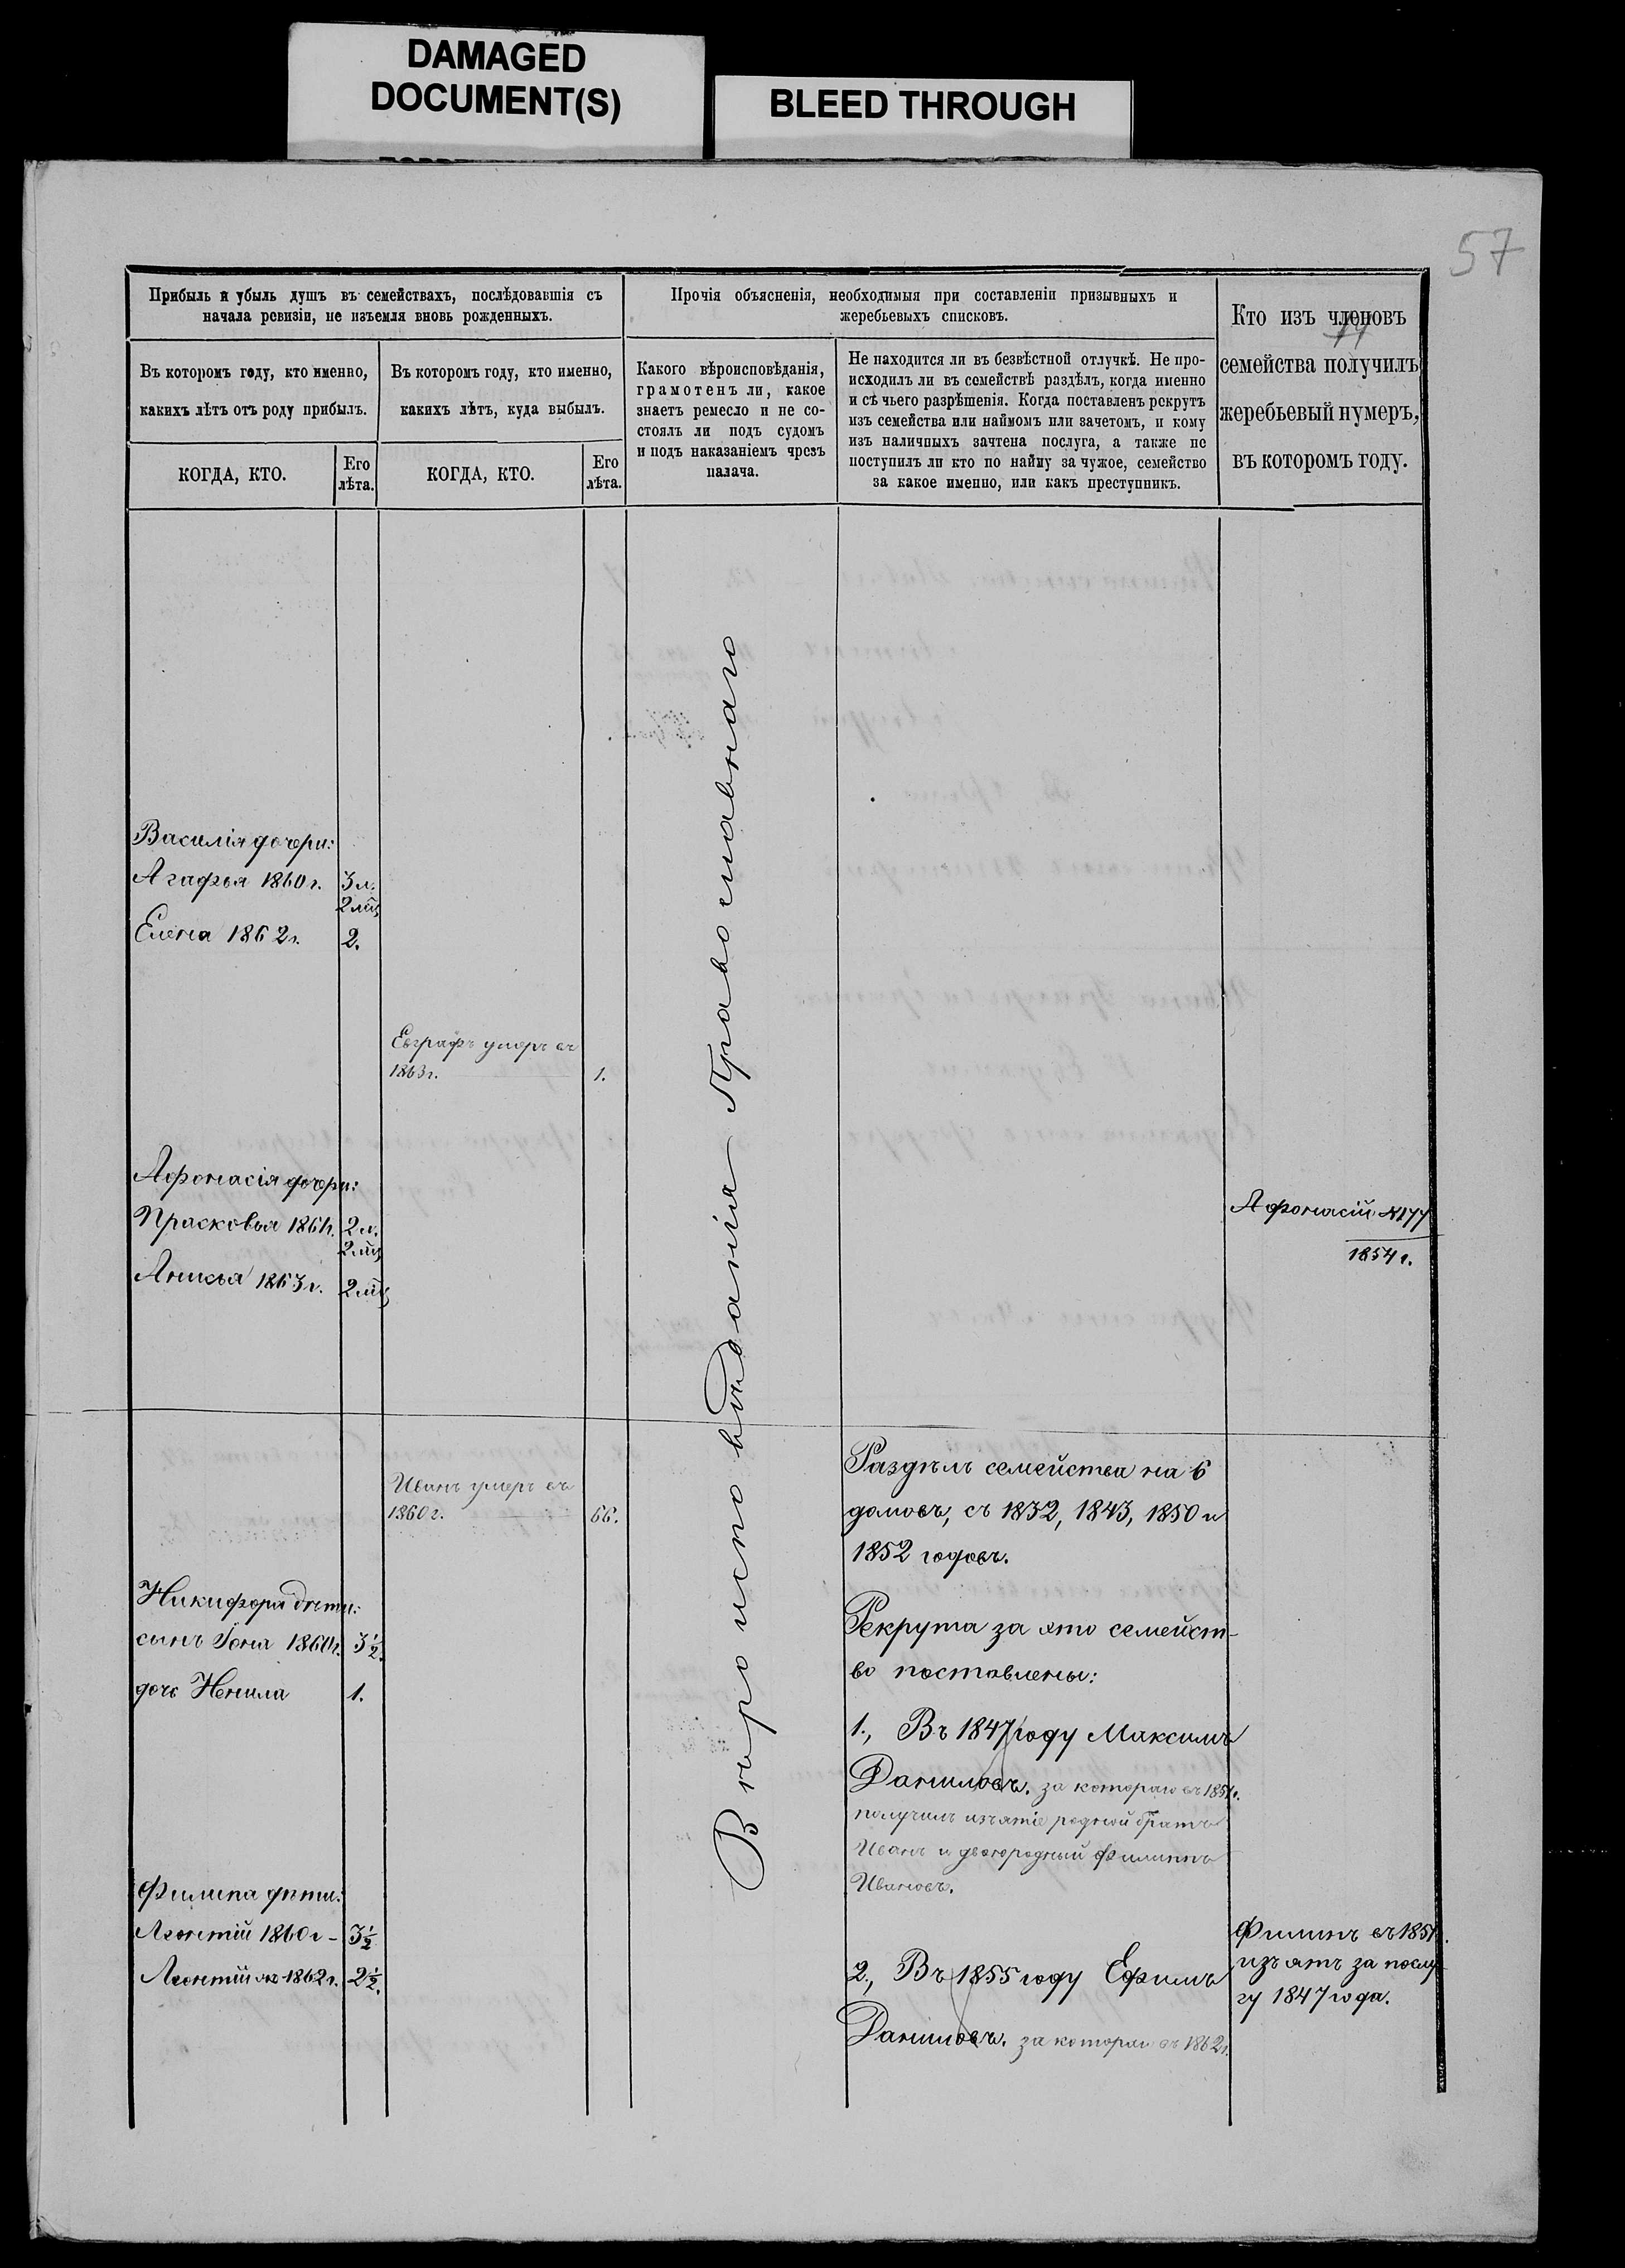 DAMAGED
DOCUMENT(S)
BLEED THROUGH
57
Прибыль и убыль душъ въ семействахъ, послѣдовавшія съ
начала ревизіи, не изъемля вновь рожденныхъ.
Въ которомъ году, кто именно,
какихъ лѣтъ отъ роду прибылъ.
КОГДА, КТО.
Его
лѣта.
Въ которомъ году, кто именно,
какихъ лѣтъ, куда выбылъ.
КОГДА, КТО.
Его
лѣта.
Прочія объясненія, необходимыя при составленіи призывныхъ и
жеребьевыхъ списковъ.
Какого вѣроисповѣданія,
грамотенъ ли, какое
знаетъ ремесло и не со-
стоялъ ли подъ судомъ
и подъ наказаніемъ чрезъ
палача.
Не находится ли въ безвѣстной отлучкѣ. Не про-
исходилъ ли въ семействѣ раздѣлъ, когда именно
и съ чьего разрѣшенія. Когда поставленъ рекрутъ
изъ семейства или наймомъ или зачетомъ, и кому
изъ наличныхъ зачтена послуга, а также не
поступилъ ли кто по найму за чужое, семейство
за какое именно, или какъ преступникъ.
Кто изъ членовъ
семейства получилъ
жеребьевый нумеръ,
въ которомъ году.
Василія дочери:
Агафья 1860 г. 3 л.
2 мц
Елена 1862 г. 2.
Евграфъ умеръ въ
1863 г. 1.
Афонасія дочери:
Прасковья 1861 г. 2 л.
2 мц
Анисья 1863 г. 2 мц
Афонасій №177
1854 г.
Вѣроисповѣданія Православнаго
Иванъ умеръ въ
1860 г. 66.
Никифора дѣти:
сынъ Іона 1860 г. 3½
дочь Ненила 1.
Филипа дѣти:
Леонтій 1860 г - 3½
Леонтій же 1862 г. 2½.
Раздѣлъ семейства на 6
домовъ, съ 1832, 1843, 1850 и
1852 годовъ.
Рекрута за это семейст-
во поставлены:
1., Въ 1847 году Максимъ
Даниловъ. за котораго въ 1854 г.
получилъ изъятіе родной братъ
Иванъ и двоюродный Филиппъ
Ивановъ.
2., Въ 1855 году Ефимъ
Даниловъ. за котораго въ 1862 г.
Филипъ въ 1854 г.
изъятъ за послу-
гу 1847 года.